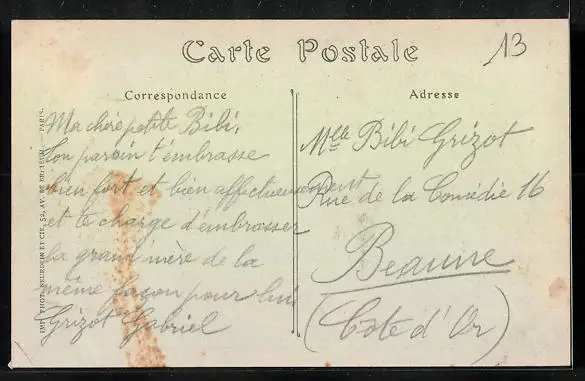 Carte Postale
13
Correspondance
Adresse
Ma chère petite Bibi,
Ton parrain t'embrasse
bien fort et bien affectueusement
et te charge d'embrasser
ta grand'mère de la
même façon pour lui
Grizot Gabriel
Melle Bibi Grizot
Rue de la Comédie 16
Beaune
(Cote d'Or)
IMP. PHOT. NEURDEIN ET CIE, 52, AV. DE BRETEUIL. — PARIS.